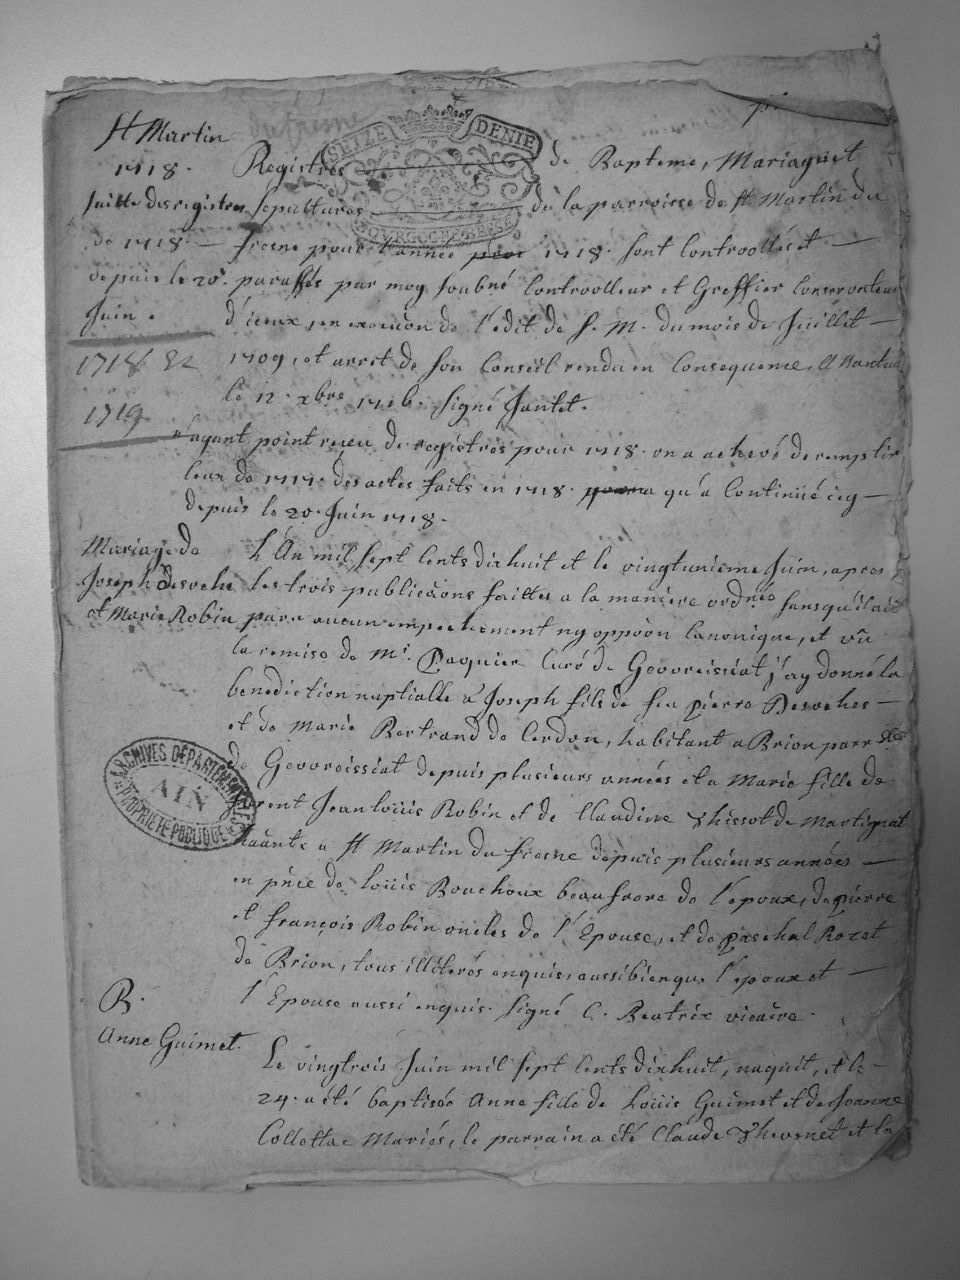 St Martin
1718.
suitte des registres
de 1718. —
depuis le 20e.
Juin.
1718 &
1719
SEIZE DENIE
BOURG BRESSE
Registres de Bapteme, Mariage et
sepultures de la parroisse de St Martin du
fresne pour l'année 1718. sont controollés et —
paraffés par moy soubné Controolleur et Greffier Conservateur
d'iceux, en execuõn de l'edit de S. M. du mois de Juillet —
1709, et arret de son Conseil rendu en consequence, A Nantua
le 12. xbre 1716. signé Jantet.
N'ayant point receu de registres pour 1718. on a achevé de remplir
ceux de 1717. des actes faits en 1718. qu'a Continüé icy —
depuis le 20. Juin 1718.
Mariage de
Joseph Desvoche
et Marie Robin
L'An mil sept cents dixhuit et le vingtunieme Juin, apres
les trois publicãons faittes a la maniere ordrée sans qu'il ait
paru aucun empechement ny oppoõn Canonique, et vû
la remise de Mr. Paquier Curé de Geovreissiat j'ay donné la
benediction nuptialle a Joseph fils de feu pierre Desvoches —
et de Marie Bertrand de Cerdon, habitant a Brion parrsse
de Geovreissiat depuis plusieurs années et a Marie fille de
Jean Loüis Robin et de Claudine Thissot de Martignat
a St Martin du fresne depuis plusieurs années —
en pñce de Loüis Bouchoux beaufrere de l'epoux, de pierre
et françois Robin oncles de l'Epouse, et de paschal Rozet
de Brion, tous illiterés enquis, aussi bien que l'epoux et —
l'Epouse aussi enquis. signé C. Beatrix vicaire.
ARCHIVES DÉPARTEMENTALES
AIN
PROPRIÉTÉ PUBLIQUE
B.
Anne Guimet.
Le vingtrois Juin mil sept cents dixhuit, naquit, et le —
24. a été baptisée Anne fille de Loüis Guimet et de Jeanne
Collettaz Mariés, le parrain a été Claude Thevenet et la